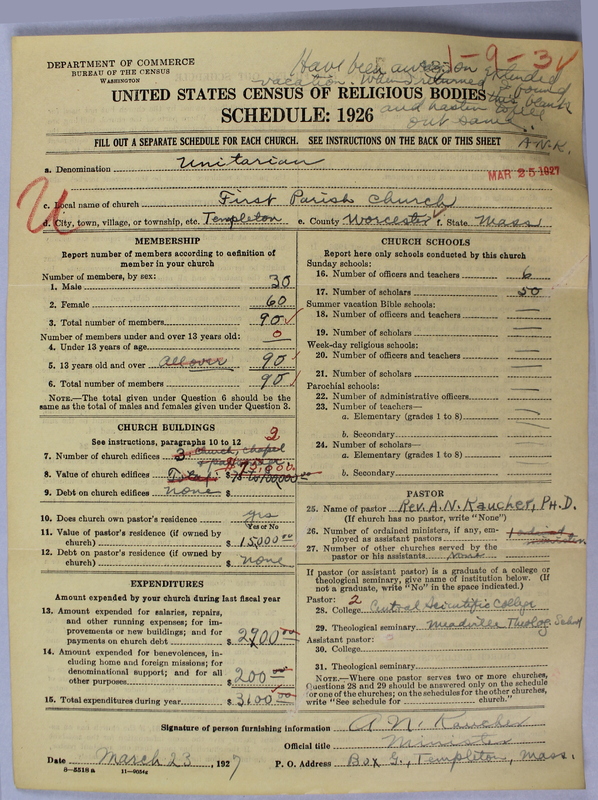 DEPARTMENT OF COMMERCE
BUREAU OF THE CENSUS
WASHINGTON
1-9-31
Have been on extended
vacation. When returned found
this blank
and hasten to fill
out same.
A.N.K.
UNITED STATES CENSUS OF RELIGIOUS BODIES
SCHEDULE: 1926
FILL OUT A SEPARATE SCHEDULE FOR EACH CHURCH. SEE INSTRUCTIONS ON THE BACK OF THIS SHEET
MAR 25 1927
U
a. Denomination Unitarian
c. Local name of church First Parish Church
d. City, town, village, or township, etc. Templeton e. County Worcester f. State Mass
MEMBERSHIP
Report number of members according to definition of
member in your church
Number of members, by sex:
1. Male 30
2. Female 60
3. Total number of members 90
Number of members under and over 13 years old:
4. Under 13 years of age 0
5. 13 years old and over all over 90
6. Total number of members 90
NOTE.—The total given under Question 6 should be the
same as the total of males and females given under Question 3.
CHURCH BUILDINGS
See instructions, paragraphs 10 to 12
7. Number of church edifices 3 church, chapel 2
8. Value of church edifices Total $
9. Debt on church edifices none $
10. Does church own pastor's residence yes
Yes or No
11. Value of pastor's residence (if owned by
church) $ 15000.00
12. Debt on pastor's residence (if owned by
church) $ none
EXPENDITURES
Amount expended by your church during last fiscal year
13. Amount expended for salaries, repairs,
and other running expenses; for im-
provements or new buildings; and for
payments on church debt $ 2900.00
14. Amount expended for benevolences, in-
cluding home and foreign missions; for
denominational support; and for all
other purposes $ 200.00
15. Total expenditures during year $ 3100.00
CHURCH SCHOOLS
Report here only schools conducted by this church
Sunday schools:
16. Number of officers and teachers 6
17. Number of scholars 50
Summer vacation Bible schools:
18. Number of officers and teachers —
19. Number of scholars —
Week-day religious schools:
20. Number of officers and teachers —
21. Number of scholars —
Parochial schools:
22. Number of administrative officers —
23. Number of teachers—
a. Elementary (grades 1 to 8) —
b. Secondary —
24. Number of scholars—
a. Elementary (grades 1 to 8) —
b. Secondary —
PASTOR
25. Name of pastor Rev. A. N. Kaucher, PH.D.
(If church has no pastor, write "None")
26. Number of ordained ministers, if any, em-
ployed as assistant pastors
27. Number of other churches served by the
pastor or his assistants None
If pastor (or assistant pastor) is a graduate of a college or
theological seminary, give name of institution below. (If
not a graduate, write "No" in the space indicated.)
Pastor: 2
28. College Central Scientific College
29. Theological seminary Meadville Theolog. School
Assistant pastor:
30. College
31. Theological seminary
NOTE.—Where one pastor serves two or more churches,
Questions 28 and 29 should be answered only on the schedule
for one of the churches; on the schedules for the other churches,
write "See schedule for church."
Signature of person furnishing information A. N. Kaucher
Official title Minister
Date March 23, 1927 P. O. Address Box G., Templeton, Mass.
8—5518a 11—9054